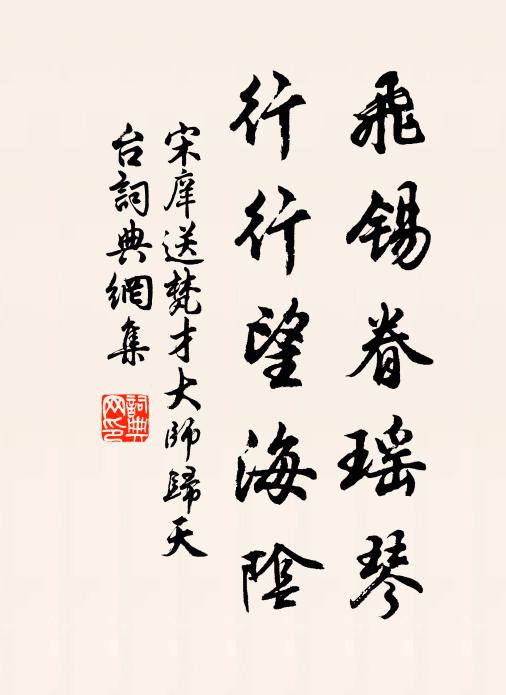 飛錫眷瑶琴
行行望海陰
宋庠送梵才大師歸天
台詞典網集
詞典
网印